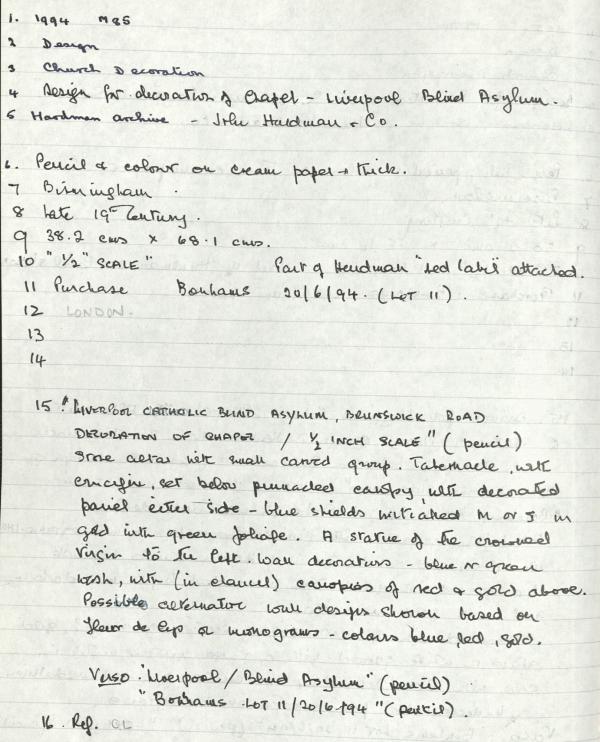 1. 1994 M85
2 Design
3 Church Decoration
4 Design for decoration of Chapel - Liverpool Blind Asylum.
5 Hardman archive - John Hardman & Co.
6. Pencil & colour on cream paper, thick.
7 Birmingham.
8 Late 19th Century.
9 38.2 cms x 68.1 cms.
10 "1/2" SCALE" Part of Hardman "red label" attached.
11 Purchase Bonhams 20/6/94. (LOT 11).
12 LONDON.
13
14
15 "LIVERPOOL CATHOLIC BLIND ASYLUM, BRUNSWICK ROAD
DECORATION OF CHAPEL / 1/2 INCH SCALE" (pencil)
Stone altar with small carved group. Tabernacle, with
crucifix, set below pinnacled canopy, with decorated
panel either side - blue shields initialled M or J in
gold with green foliage. A statue of the crowned
Virgin to the left. Wall decorations - blue or green
wash, with (in chancel) canopies of red & gold above.
Possible alternative wall designs shown based on
fleur de lys or monograms - colours blue, red, gold.
Verso "Liverpool / Blind Asylum" (pencil)
"Bonhams LOT 11/20/6/94" (pencil).
16. Ref. GL